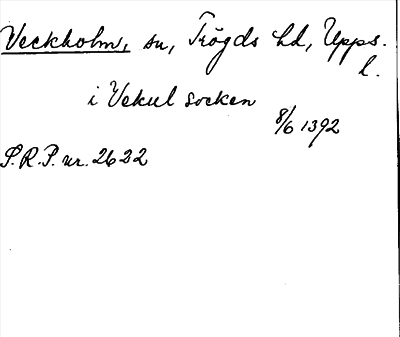 Veckholm, sn, Trögds hd, Upps.
l.
i Vekul socken
8/6 1392
S.R.P. nr. 2622